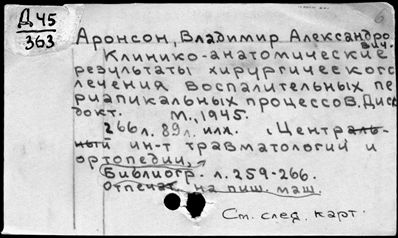 Д 45
363
6
Аронсон, Владимир Александро
вич.
Клинико-анатомические
результаты хирургического
лечения воспалительных пе
риапикальных процессов. Дисс
докт. М., 1945.
266 л. 89 л. илл. (Централь-
ный ин-т травматологии и
ортопедии,
Библиогр. л. 259-266.
Отпечат. на пиш. маш.
См. след. карт.